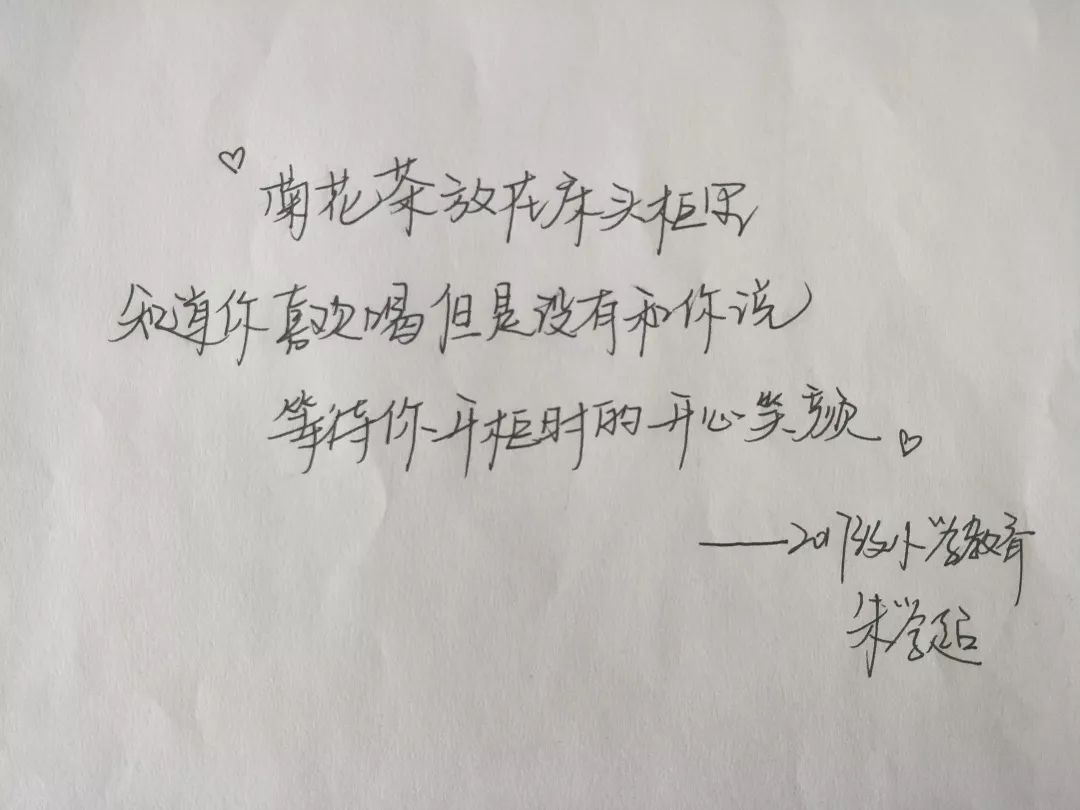 ♡菊花茶放在床头柜里
知道你喜欢喝但是没有和你说
等待你开柜时的开心笑颜。♡
——2017级小学教育
朱学廷